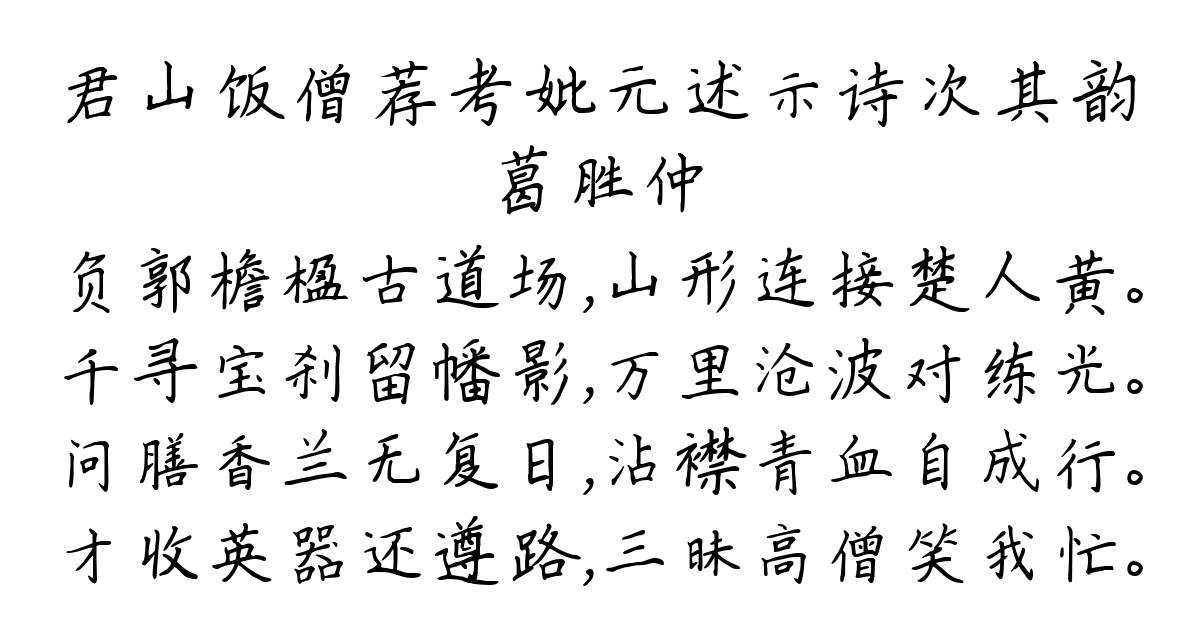 君山饭僧荐考妣元述示诗次其韵
葛胜仲
负郭檐楹古道场,山形连接楚人黄。
千寻宝刹留幡影,万里沧波对练光。
问膳香兰无复日,沾襟青血自成行。
才收英器还遵路,三昧高僧笑我忙。